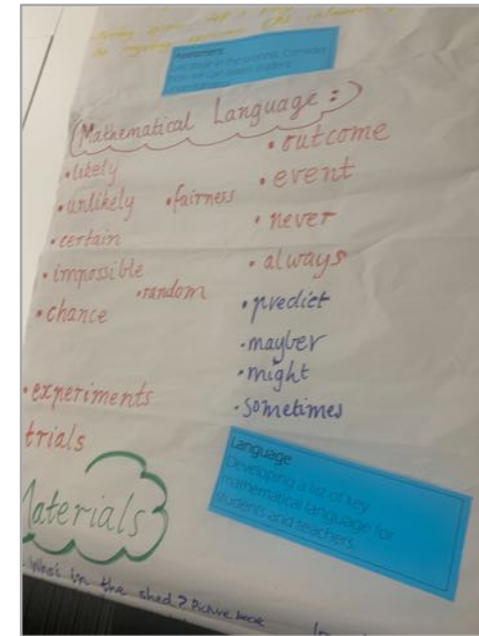 Assessment
(Mathematical Language :)
• likely
• unlikely
• fairness
• certain
• impossible
• random
• chance
• experiments
trials
• outcome
• event
• never
• always
• predict
• mayber
• might
• sometimes
Language
Developing a list of key
mathematical language for
students and teachers.
Materials
Who's in the shed? Picture book